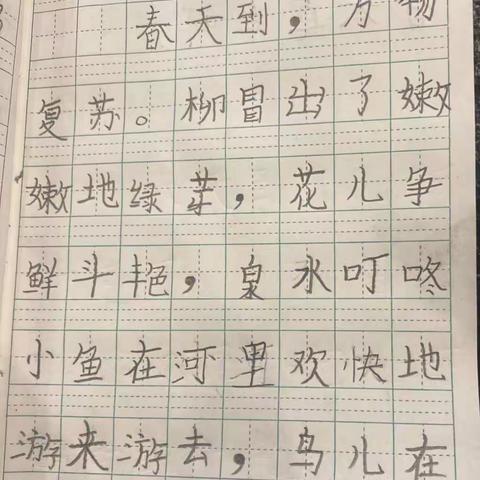 春天到，万物
复苏。柳冒出了嫩
嫩地绿芽，花儿争
鲜斗艳，泉水叮咚
小鱼在河里欢快地
游来游去，鸟儿在